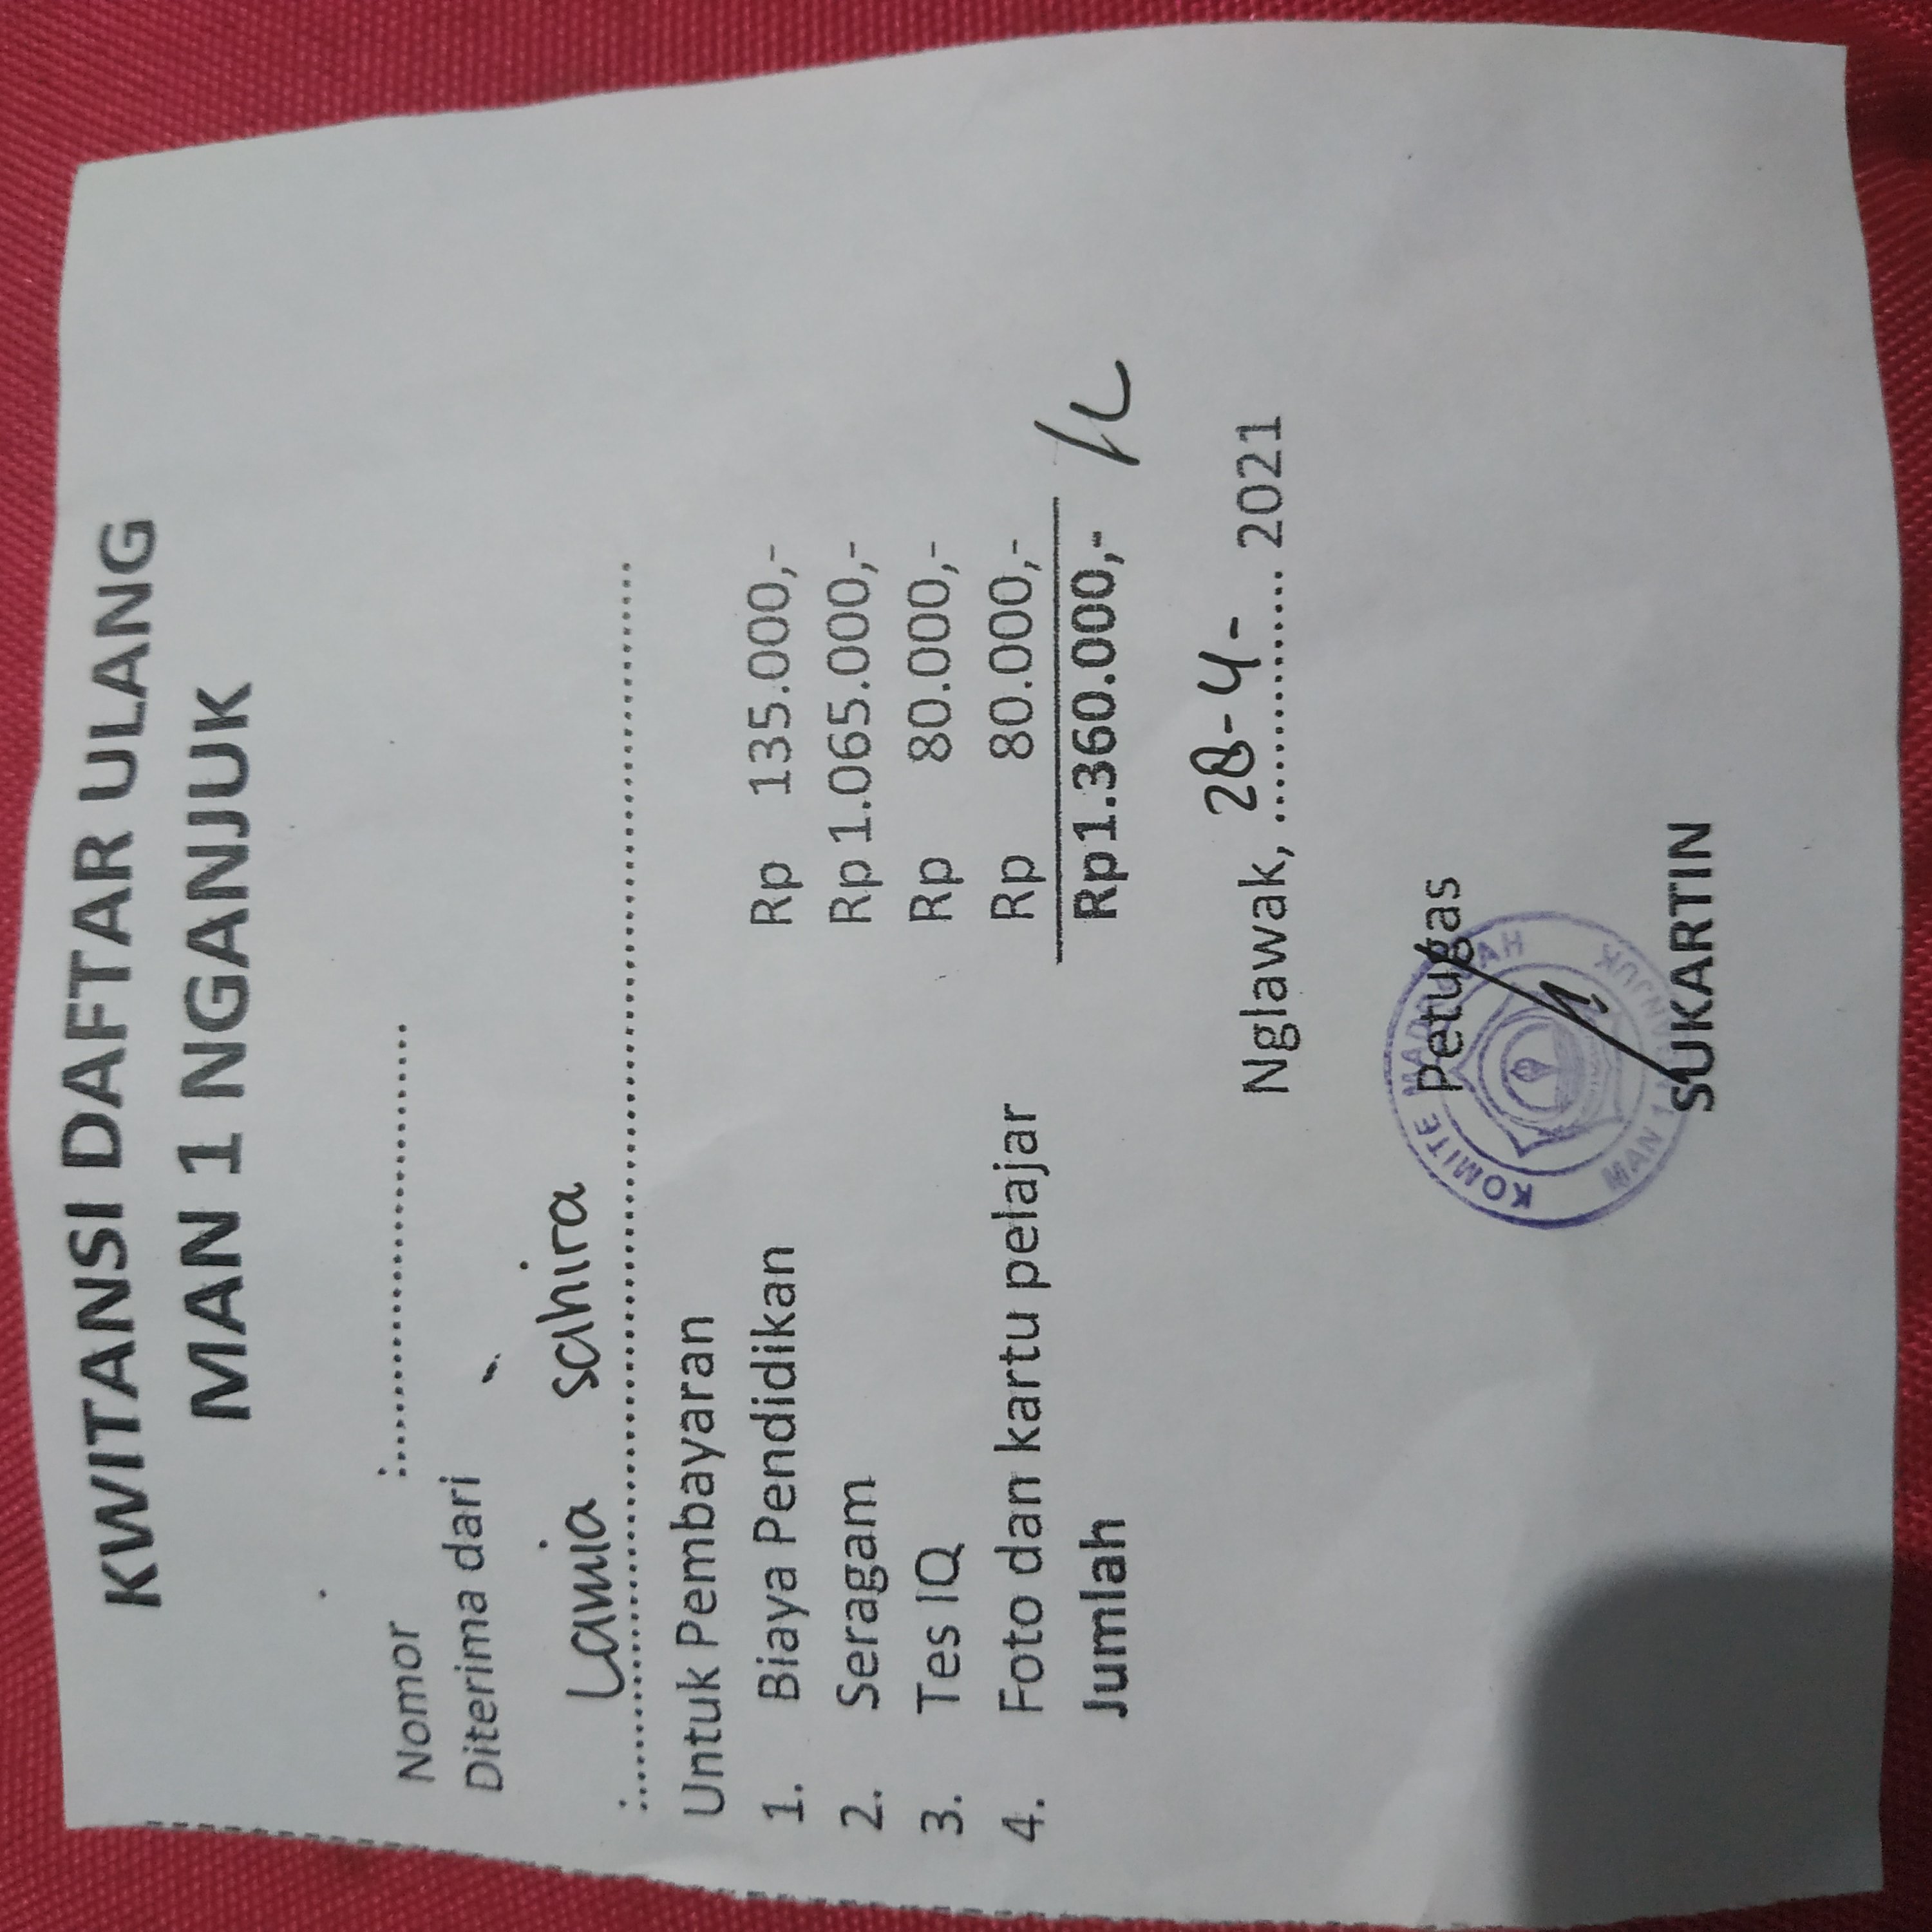 KWITANSI DAFTAR ULANG
MAN 1 NGANJUK
Nomor :..............................
Diterima dari
: Lamia sahira
Untuk Pembayaran
1. Biaya Pendidikan Rp 135.000,-
2. Seragam Rp 1.065.000,-
3. Tes IQ Rp 80.000,-
4. Foto dan kartu pelajar Rp 80.000,-
Jumlah Rp1.360.000,-
Nglawak, 28-4- 2021
Petugas
KOMITE MADRASAH
MAN 1 NGANJUK
SUKARTIN